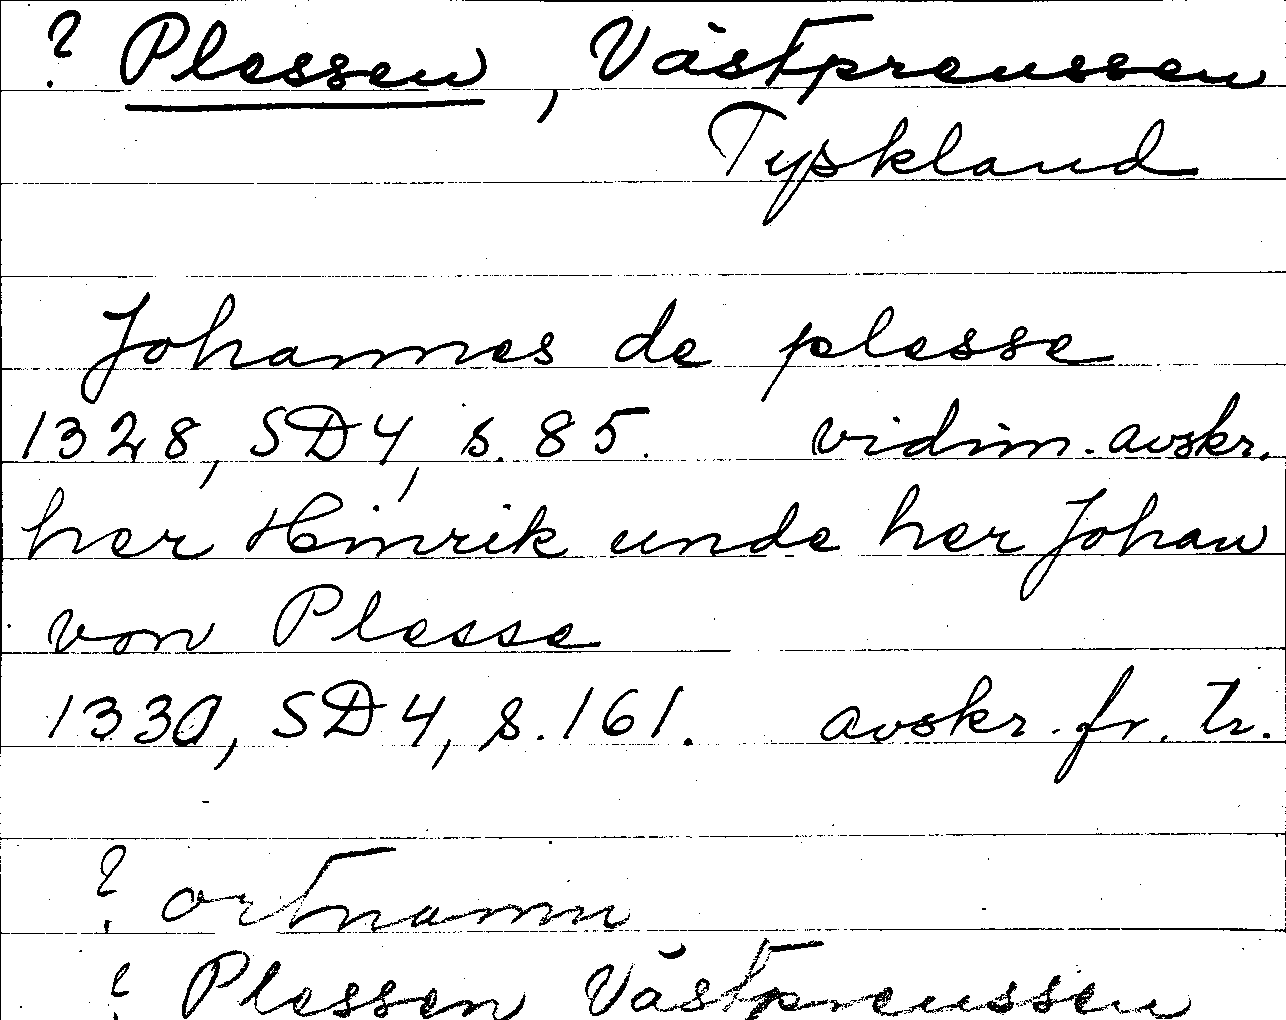 ? Plessen, Västpreussen
Tyskland
Johannes de plesse
1328, SD4, s. 85. vidim. avskr.
her Hinrik unde her Johan
von Plesse
1330, SD4, s. 161. avskr. fr. tr.
? ortnamn
? Plessen Västpreussen